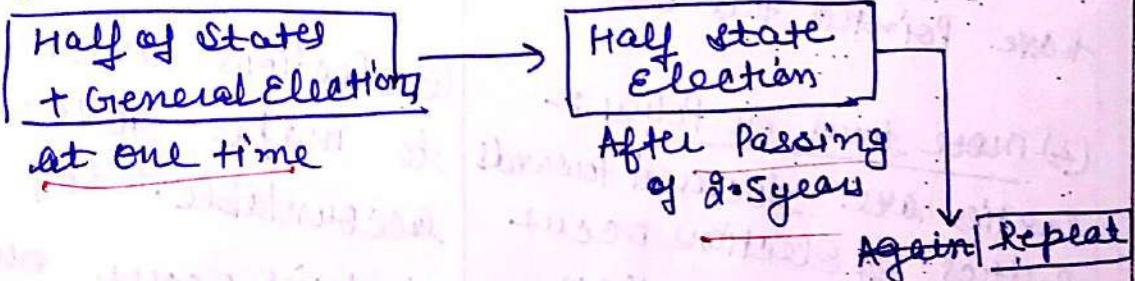 Half of States
+ General Elections
at one time
Half state
Election
After Passing
of 2.5 years
Again Repeat